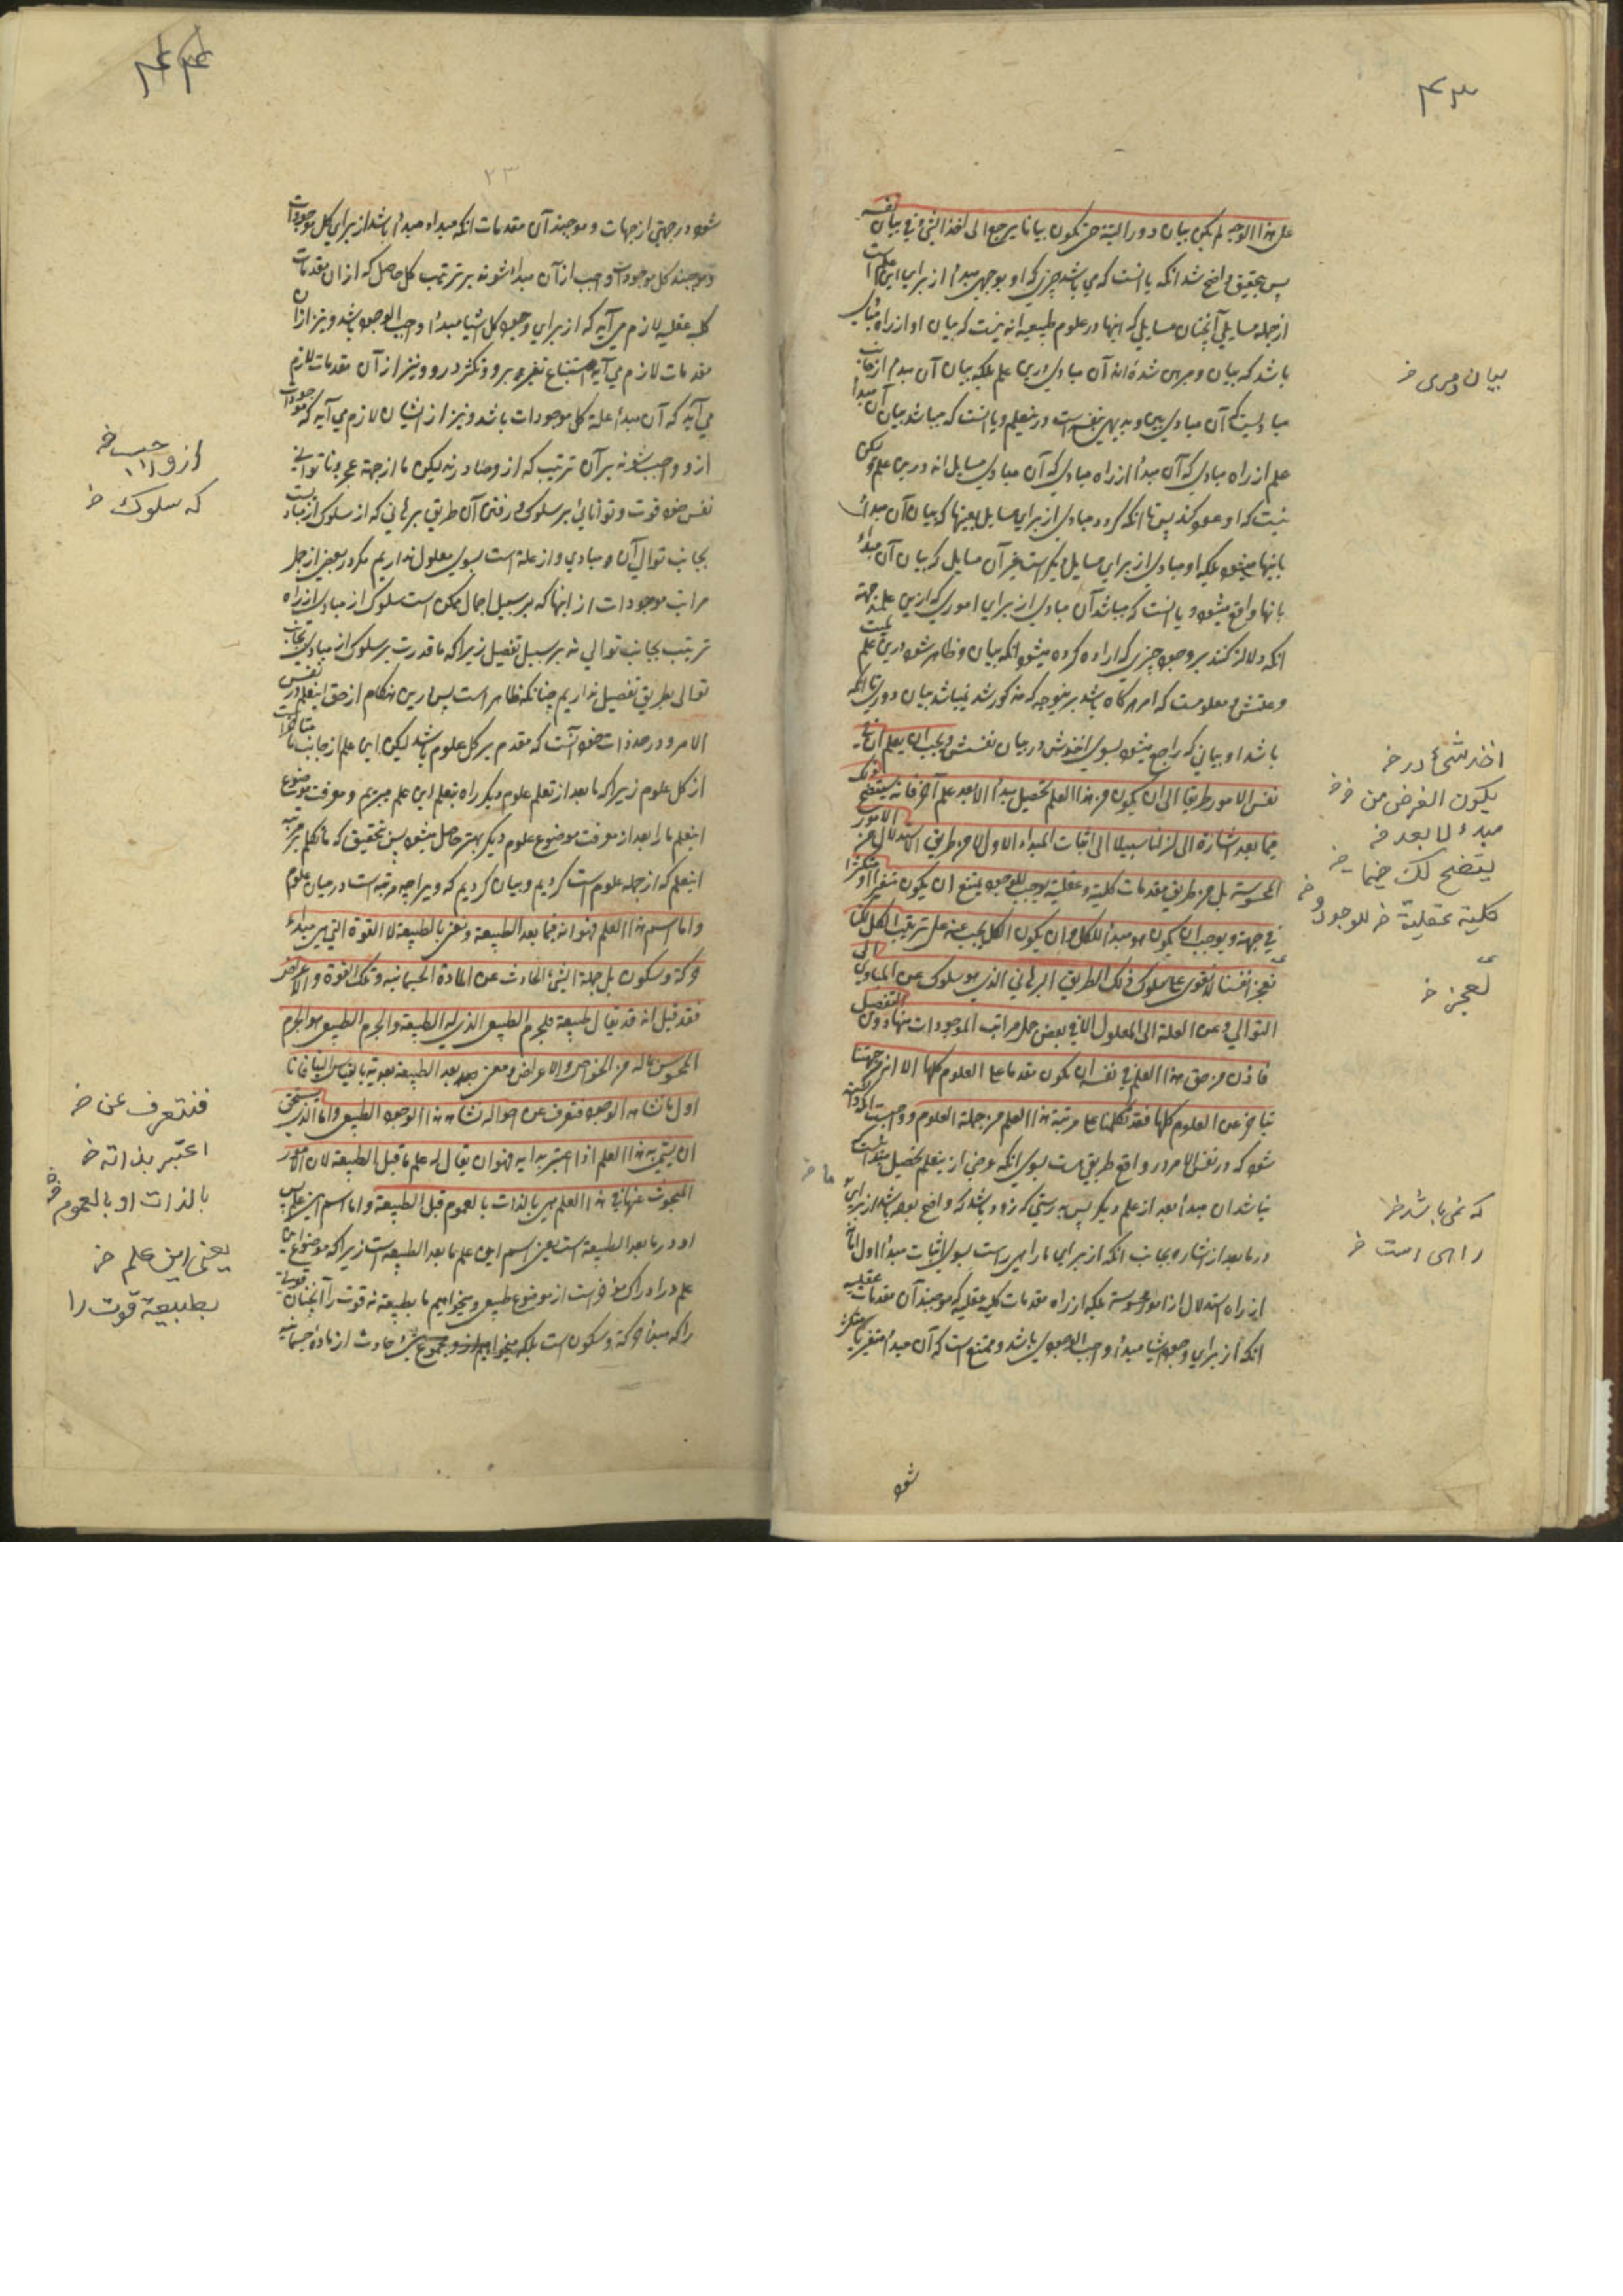 ۴۳
على هذا الوجه لم يكن بيان دور البتة حتى يكون بيانا يرجع الى اخذ الشئ في بيان نفسه
پس بتحقيق واضح شد انكه يا انست كه مي باشد چيزي كه او بوجهي مبدأ از براي اين علم است
از جمله مسايلي آنچنان مسايلي كه اينها در علوم طبيعيه اند نيست كه بيان او از راه مبادي
باشد كه بيان و مبرهن شده اند آن مبادي درين علم بلكه بيان آن مبدأ از جانب
مباديست كه آن مبادي بين و بديهي بنفس است درينعلم و يا انست كه ميباشد بيان آن مبدأ
علم از راه مبادي كه آن مبدأ از راه مبادي كه آن مبادي مسايل اند درين علم وليكن
نيست كه او عود كند پس تا انكه گردد مبادي از براي مسايل بعينها كه بيان آن مبدأ
بانها ميشود بلكه او مبادي از براي مسايل ديگر است غير آن مسايل كه بيان آن مبدأ
بانها واقع ميشود و يا انست كه ميباشد آن مبادي از براي اموري كه ازين علمند جهة
انكه دلالت كنند بر وجود چيزي كه اراده كرده ميشود انكه بيان و ظاهر شود درين علم لميت
و علتش و معلومست كه امر هرگاه باشد برينوجه كه مذكور شد نميباشد بيان دوري تا انكه
باشد او بياني كه راجع ميشود بسوي اخذش در بيان نفسش ويجب ان يعلم ان في
نفس الامور طريقا الى ان يكون من هذا العلم تحصيل مبدأ الا بعد علم آخر فانه سيتضح لك
فيما بعد اشارة الى ان لنا سبيلا الى اثبات المبدء الاول لا من طريق الاستدلال من الامور
المحسوسة بل من طريق مقدمات كلية وعقلية يوجب للوجود يمتنع ان يكون متغيرا او متكثرا
في جهة ويوجب ان يكون هو مبدأ للكل وان يكون الكل يجب عنه على ترتيب الكل لكنا
نعجز انفسنا لا نقوى على سلوك ذلك الطريق البرهاني الذي هو سلوك عن المبادي الى
التوالي وعن العلة الى المعلول الا في بعض جمل مراتب الموجودات منها دون التفصيل
فاذن من حق هذا العلم في نفسه ان يكون مقدما على العلوم كلها الا انه من جهتنا
يتاخر عن العلوم كلها فقد تكلمنا على مرتبة هذا العلم من جملة العلوم و واجبست اكه دانسته
شود كه در نفس الامر و در واقع طريقي هست بسوي انكه غرض ازينعلم تحصيل مبدأست
نباشد ان مبدأ بعد از علم ديگر پس بدرستي كه زود باشد كه واضح بوده باشد از براي
در ما بعد از اشاره بجانب انكه از براي ما راهي راست بسوي اثبات مبدأ اول اما نه
از راه استدلال از امور محسوسة بلكه از راه مقدمات كلي عقليه كه موجبند آن مقدمات عقليه
انكه از براي وجود شيا مبدأ واجب الوجودي باشد و ممتنع است كه آن مبدأ متغير يا متكثر
شود
بيان ومرى خ
اخذ شئ در خ
يكون الغرض من خ خ
مبدء لما بعد خ
يتضح لك فيما خ
كلية عقلية خ للوجود و خ
لعجز خ
ما خ
كه نمى باشد خ
راهى است خ
۴۴
۲۳
شود در جهتي از جهات و موجبند آن مقدمات انكه مبداء مبدأ باشد از براي كل موجودات
و موجبند كل موجودات واجب از آن مبدأ شوند بر ترتيب كل حاصل كه از ان مقدمات
كليه عقليه لازم مي آيد كه از براي وجود كل شيا مبدأ واجب الوجود باشد و نيز از ان
مقدمات لازم مي آيد امتناع تغير برو و تكثر درو و نيز از آن مقدمات لازم
مي آيد كه آن مبدأ علة كل موجودات باشد و نيز از ايشان لازم مي آيد كه موجودات
ازو واجب شوند بر آن ترتيب كه ازو صادرند ليكن ما از جهة عجز و ناتواني
نفس خود قوت و توانائي بر سلوك و رفتن آن طريق برهاني كه از سلوك از مبادي است
بجانب توالي آن و مبادي و از علة است بسوي معلول نداريم مگر در بعضي از جمل
مراتب موجودات از اينها كه بر سبيل اجمال ممكن است سلوك از مبادي از راه
ترتيب بجانب توالي نه بر سبيل تفصيل زيرا كه ما قدرت بر سلوك از مبادي بجانب
توالي بطريق تفصيل نداريم چنانكه ظاهر است پس درين هنگام از حق اينعلم در نفس
الامر و در حد ذات خود آنست كه مقدم بر كل علوم باشد ليكن اين علم از جانب ما متاخر است
از كل علوم زيرا كه ما بعد از تعلم علوم ديگر راه بتعلم اين علم ميبريم و معرفت موضوع
اينعلم ما را بعد از معرفت موضوع علوم ديگر بهتر حاصل ميشود پس بتحقيق كه ما تكلم بر مرتبه
اينعلم كه از جمله علوم است كرديم و بيان كرديم كه ويرا چه مرتبه است در ميان علوم
واما اسم هذا العلم فهو انه فيما بعد الطبيعة ونعني بالطبيعة لا القوة التي هي مبدء
حركة وسكون بل جملة الشئ الحادث عن المادة الجسمانيه وتلك القوة والاعراض
فقد قيل انه قد يقال طبيعة للجرم الطبيعي الذي له الطبيعة والجرم الطبيعي هو الجرم
المحسوس بما له من الخواص والاعراض ومعنى بعد الطبيعة بعدية بالقياس الينا فانا
اول ما نشاهد الوجود ونتعرف عن احواله نشاهد هذا الوجود الطبيعي واما الذي يستحق
ان يسمى به هذا العلم اذا اعتبر بذاته فهو ان يقال له علم ما قبل الطبيعة لان الامور
المبحوث عنها في هذا العلم هي بالذات بالعموم قبل الطبيعة واما اسم اين علم پس
او در ما بعد الطبيعة است يعني اسم اين علم ما بعد الطبيعه است زيرا كه موضوع اين
علم در ادراك مؤخر است از موضوع طبيعي و ميخواهيم ما بطبيعة نه قوت را آنچنان قوتي
را كه مبدأ حركة و سكون است بلكه ميخواهيم ازو مجموع شئ حادث از مادهٔ جسمانيه
ازو واجب خ
كه سلوك خ
فنتعرف عن خ
اعتبر بذاته خ
بالذات او بالعموم خ
يعنى اين علم خ
بطبيعة قوت را